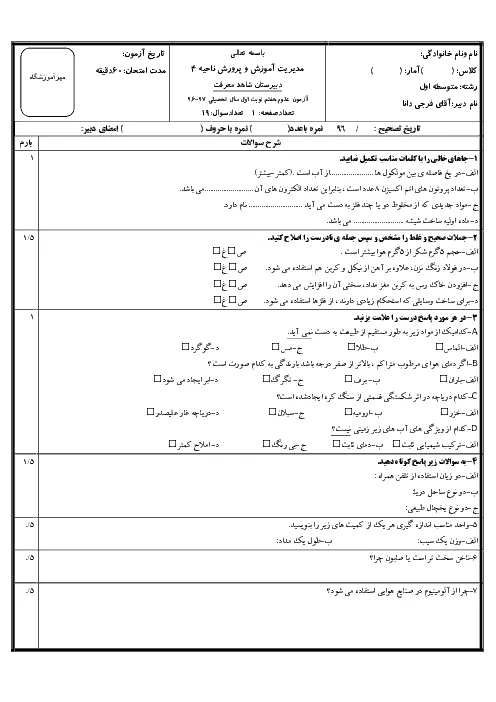 نام ونام خانوادگی:
کلاس: ( ) آمار: ( )
رشته: متوسطه اول
نام دبیر: آقای فرجی دانا
باسمه تعالی
مدیریت آموزش و پرورش ناحیه ۴
دبیرستان شاهد معرفت
آزمون علوم هفتم نوبت اول سال تحصیلی ۹۷-۹۶
تعدادصفحه: ۱ تعدادسوال: ۱۹
تاریخ آزمون:
مدت امتحان: ۶۰دقیقه
مهرآموزشگاه
تاریخ تصحیح : / ۹۶ نمره باعدد( ) نمره با حروف ( ) امضای دبیر:
شرح سوالات بارم
۱-جاهای خالی را با کلمات مناسب تکمیل نمایید. ۱
الف-در یخ فاصله ی بین مولکول ها .....................از آب است .(کمتر-بیشتر)
ب-تعداد پروتون های اتم اکسیژن ۸عدد است ، بنابراین تعداد الکترون های آن ........................می باشد.
ج-مواد جدیدی که از مخلوط دو یا چند فلز به دست می آید .......................... نام دارد.
د-ماده اولیه ساخت شیشه ........................ می باشد.
۲-جملات صحیح و غلط را مشخص و سپس جمله ی نادرست را اصلاح کنید. ۱/۵
الف-حجم ۵گرم شکر از ۵گرم هوا بیشتر است . ص□غ□
ب-در فولاد زنگ نزن، علاوه بر آهن از نیکل و کربن هم استفاده می شود. ص□غ□
ج-افزودن خاک رس به کربن مغز مداد، سختی آن را افزایش می دهد. ص□غ□
د-برای ساخت وسایلی که استحکام زیادی دارند ، از فلزها استفاده می شود. ص□غ□
۳-در هر مورد پاسخ درست را علامت بزنید. ۱
A-کدامیک از مواد زیر به طور مستقیم از طبیعت به دست نمی آید.
الف-الماس□ ب-طلا□ ج-مس□ د-گوگرد□
B-اگر دمای هوا ی مرطوب متراکم ، بالاتر از صفر درجه باشد بارندگی به کدام صورت است ؟
الف-باران□ ب-برف□ ج-تگرگ□ د-ابر ایجاد می شود□
C-کدام دریاچه در اثر شکستگی قسمتی از سنگ کره ایجادشده است؟
الف-خزر□ ب-ارومیه□ ج-سبلان□ د-دریاچه غار علیصدر□
D-کدام از ویژگی های آب های زیر زمینی نیست؟
الف-ترکیب شیمیایی ثابت□ ب-دمای ثابت□ ج-بی رنگ□ د-املاح کمتر□
۴-به سوالات زیر پاسخ کوتاه دهید. ۱/۵
الف-دو زیان استفاده از تلفن همراه :
ب-دو نوع ساحل دریا:
ج-دو نوع یخچال طبیعی:
۵-واحد مناسب اندازه گیری هر یک از کمیت های زیر را بنویسید. ۰/۵
الف-وزن یک سیب: ب-طول یک مداد:
۶-ناخن سخت تر است یا صابون چرا؟ ۰/۵
۷-چرا از آلومینیوم در صنایع هوایی استفاده می شود؟ ۰/۵